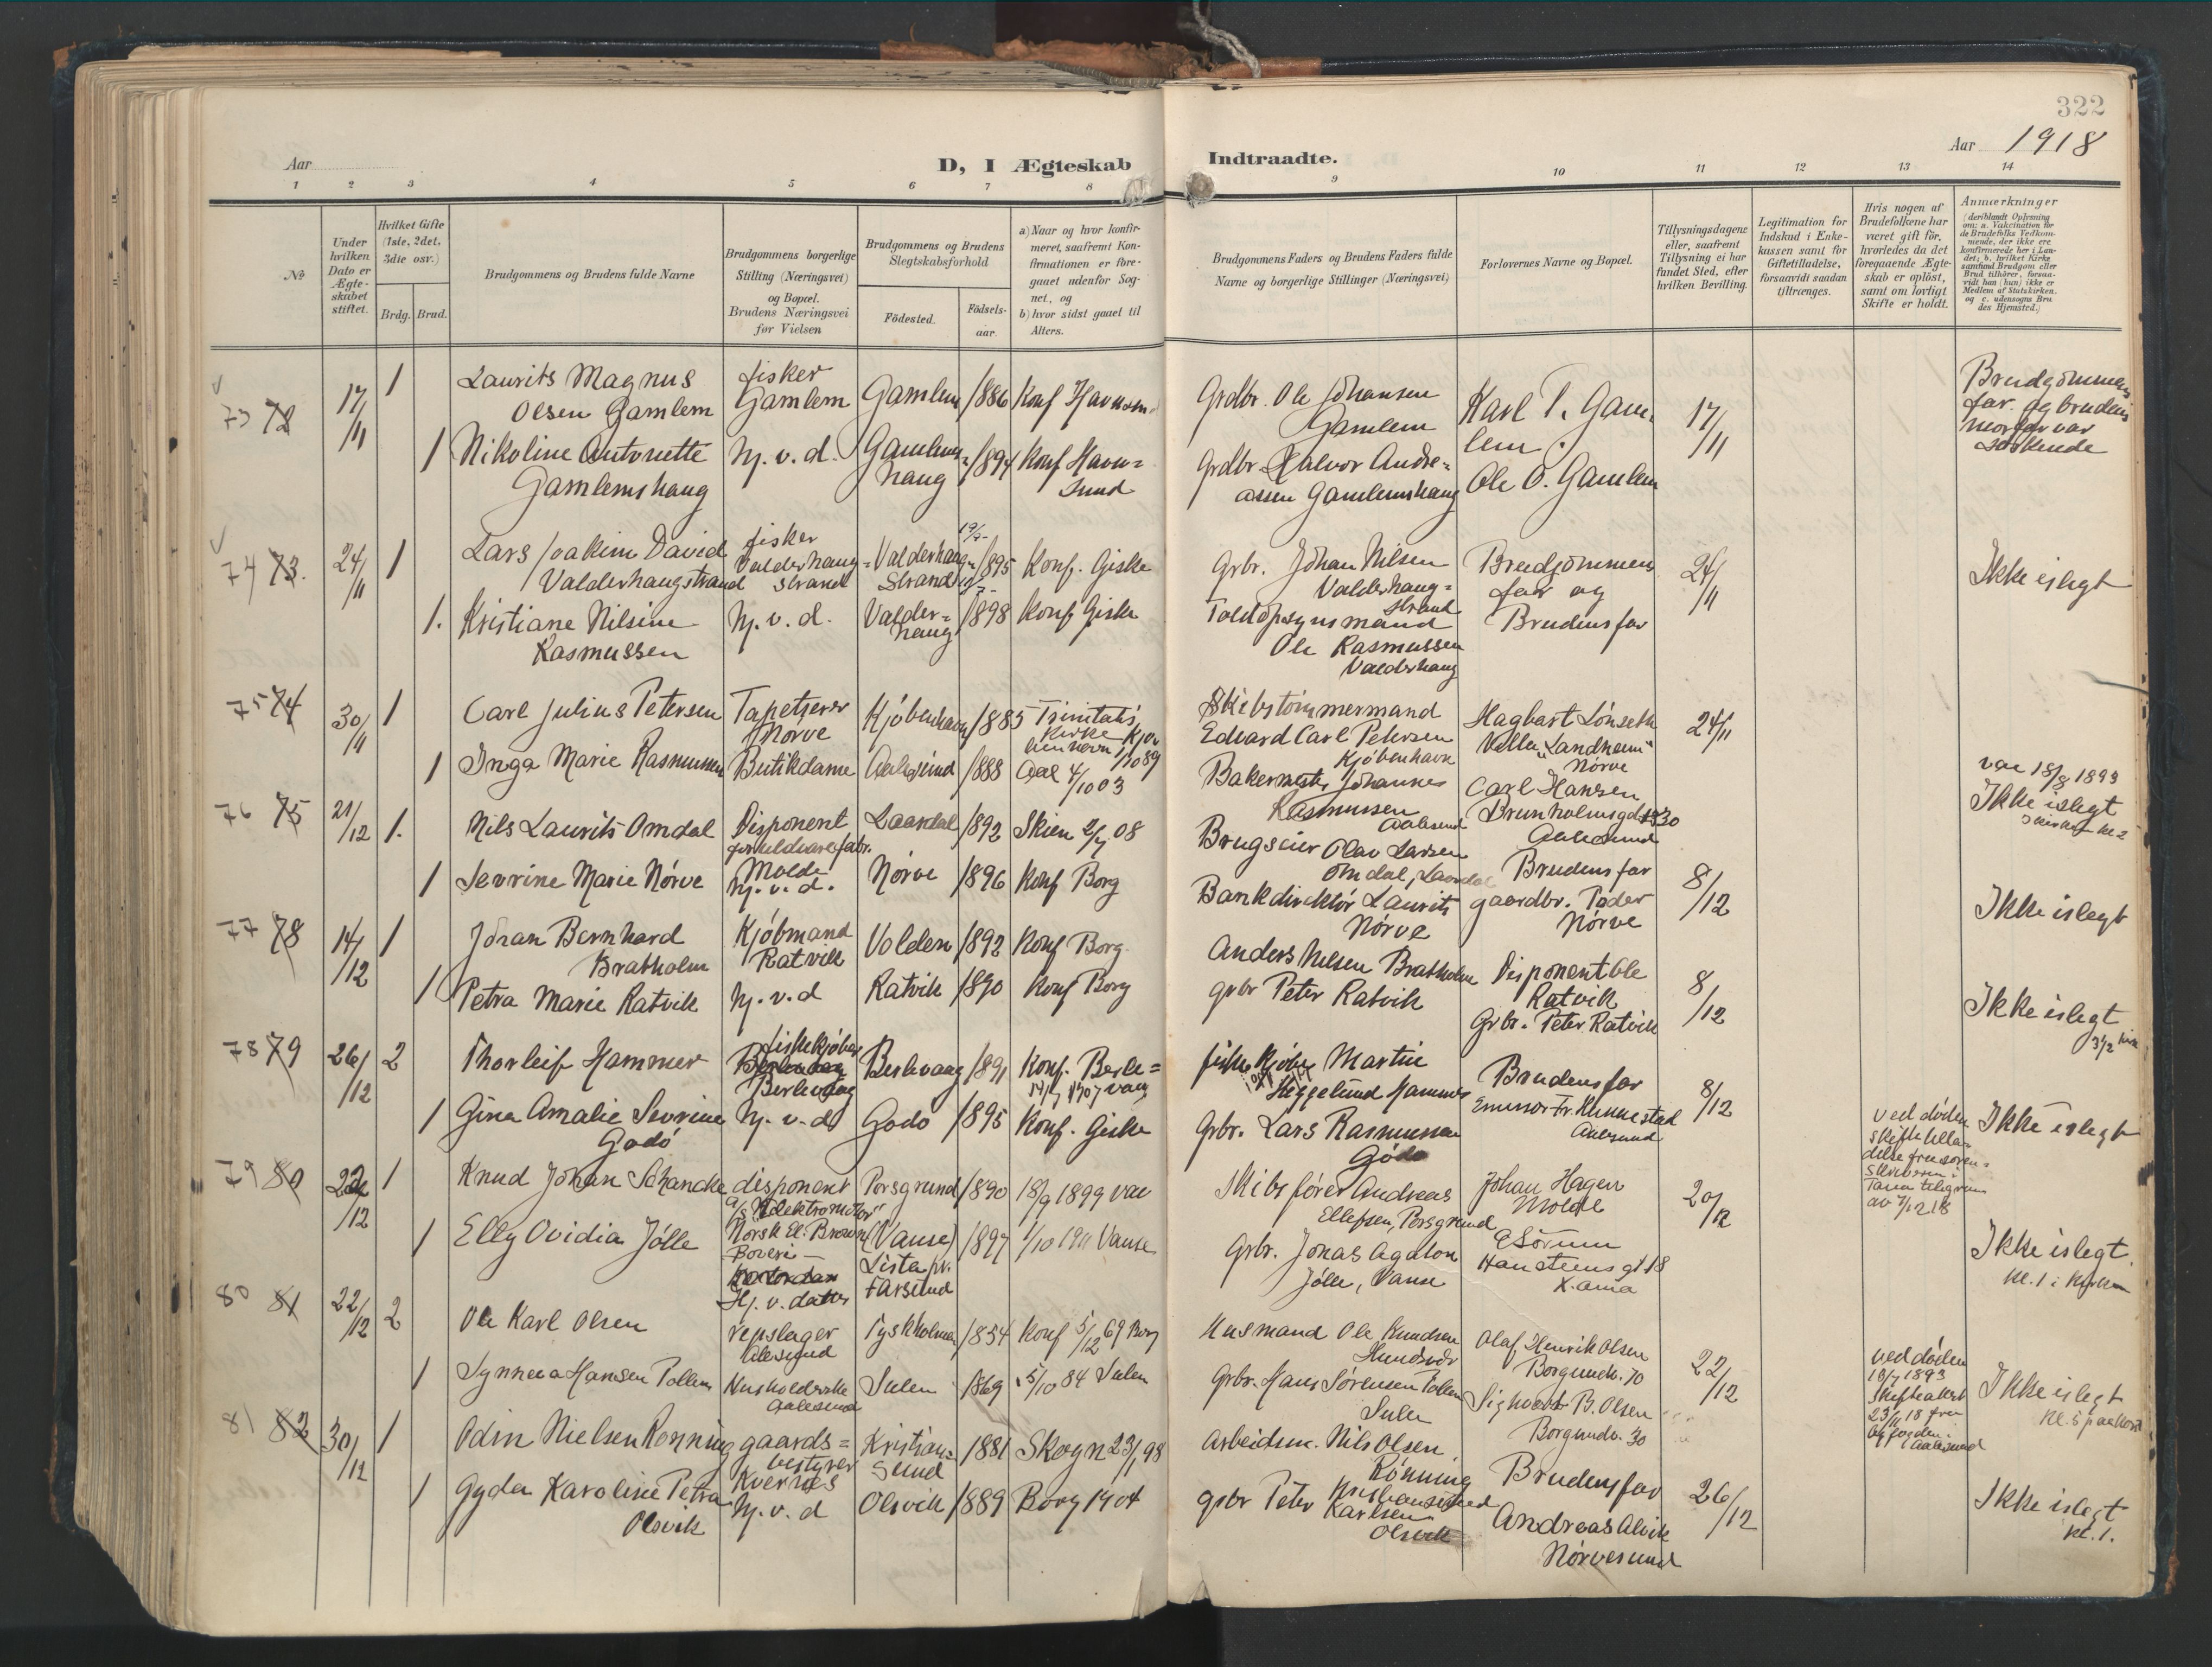 322
Aar 1918
Aar
D, I Ægteskab Indtraadte.
1 2 3 4 5 6 7 8 9 10 11 12 13 14
No
Under hvilken Dato er Ægteskabet stiftet.
Hvilket Gifte (1ste, 2det, 3die osv.)
Brdg. Brud.
Brudgommens og Brudens fulde Navne
Brudgommens borgerlige Stilling (Næringsvei) og Bopæl. Brudens Næringsvei før Vielsen
Brudgommens og Brudens Slegtskabsforhold
Fødested.
Fødselsaar.
a) Naar og hvor konfirmeret, saafremt Konfirmationen er foregaaet udenfor Sognet, og
b) hvor sidst gaaet til Alters.
Brudgommens Faders og Brudens Faders fulde Navne og borgerlige Stillinger (Næringsvei)
Forlovernes Navne og Bopæl.
Tillysningsdagene eller, saafremt Tillysning ei har fundet Sted, efter hvilken Bevilling.
Legitimation for Indskud i Enkekassen samt for Giftetilladelse, forsaavidt saadan tiltrænges.
Hvis nogen af Brudefolkene har været gift før, hvorledes da det foregaaende Ægteskab er opløst, samt om lovligt Skifte er holdt.
Anmærkninger
(deriblandt Oplysning om: a. Vakcination for de Brudefolks Vedkommende, der ikke ere konfirmerede her i Landet; b. hvilket Kirkesamfund Brudgom eller Brud tilhører, forsaavidt han (hun) ikke er Medlem af Statskirken, og c. udensogns Brudes Hjemsted.)
73 72
17/11
1
Laurits Magnus
Olsen Gamlem
fisker
Gamlem
Gamlem
1886
Konf Havnsund
Grdbr. Ole Johansen
Gamlem
Karl P. Gamlem
17/11
Brudgommens
far og brudens
morfar var
søskende
1
Nikoline Antonette
Gamlemshaug
hj. v. d.
Gamlemshaug
1894
Konf Havnsund
Grdbr. Halvor Andreassen Gamlemshaug
Ole O. Gamlem
74 73.
24/11
1
Lars Joakim David
Valderhaugstrand
fisker
Valderhaugstrand
Valderhaugstrand
1895
Konf. Giske
Grbr. Johan Nilsen
Valderhaugstrand
Brudgommens
far og
24/11
Ikke i slegt
1.
Kristiane Nilsine
Rasmussen
hj. v. d.
Valderhaug
1898
Konf Giske
Toldopsynsmand
Ole Rasmussen
Valderhaug
Brudens far
75 74
30/11
1
Carl Julius Petersen
Tapetserer
Nørve
Kjøbenhavn
1885
Trinitatis
Kirke Kjøbenhavn
Skibstømmermand
Edvard Carl Petersen
Kjøbenhavn
Hagbart Lønseth
Villa "Landheim"
Nørve
24/11
1
Inga Marie Rasmussen
Butikdame
Aalesund
1888
Aal 4/10 03
Bakermester Johannes
Rasmussen
Aalesund
Carl Hansen
Brunholmsgd 30
Aalesund
vac 18/8 1893
Ikke i slegt
76 75
21/12
1.
Nils Laurits Omdal
Disponent
for uldvarefabr.
Molde
Laardal
1892
Skien 2/7 08
Brugseier Olav Larsen
Omdal, Laardal
Brudens far
8/12
1
Sevrine Marie Nørve
hj. v. d.
Nørve
1896
Konf Borg
Bankdirektør Laurits
Nørve
gaardbr. Peder
Nørve
Ikke i slegt
77 78
14/12
1
Johan Bernhard
Bratholm
Kjøbmand
Ratvik
Volden
1892
Konf Borg
Anders Nilsen Bratholm
Disponent Ole
Ratvik
8/12
1
Petra Marie Ratvik
hj. v. d
Ratvik
1890
Konf Borg
grbr Peter Ratvik
Grbr. Peter Ratvik
Ikke i slegt
78 79
26/12
2
Thorleif Hammer
fiskekjøber
Berlevaag
Berlevaag
1891
Konf. Berlevaag
fiskekjøber Martin
Heggelund Hammer
Brudens far
8/12
1
Gina Amalie Sevrine
Godø
hj. v. d
Godø
1895
Konf. Giske
Grbr. Lars Rasmussen
Godø
Aalesund
ved døden
Ikke i slegt
79 80
22/12
1
Knud Johan Schancke
disponent
a/s "Elektromotor"
Norsk El. Brown
Boveri
Porsgrund
1890
18/9 1899 vac
Skibsfører Andreas
Ellefsen, Porsgrund
Johan Hagen
Molde
20/12
av 7/12 18
1
Elly Ovidia Jølle
Hj. v. datter
(Vanse)
Lista pr.
Farsund
1897
1/10 1911 Vanse
Grbr. Jonas Agaton
Jølle, Vanse
E Sørum
Hansteens gt 18
X.ania
Ikke i slegt.
kl. 1 i kirken
80 81
22/12
2
Ole Karl Olsen
repslager
Alesund
Tyskholmen
1854
Konf 5/12 69 Borg
Husmand Ole Knudsen
Olaf Henrik Olsen
Borgundv. 70
22/12
ved døden
18/7 1893
Skifteattest
23/11 18 fra
Byfogden i
Aalesund
1
Synneva Hansen Pollen
Husholderske
Aalesund
Sulen
1869
5/10 84 Sulen
Grbr. Hans Sørensen Pollen
Sulen
Sigvart B. Olsen
Borgundv. 30
Ikke i slegt
81 82
30/12
1
Odin Nielsen Rønning
gaardsbestyrer
Kvernes
Kristiansund
1881
Skogn 23/1 98
Arbeidsm. Nils Olsen
Rønning
Kristiansund
Brudens far
26/12
1
Gyda Karoline Petra
Olsvik
hj. v. d
Olsvik
1889
Borg 1904
grbr Peter Karlsen
Olsvik
Andreas Alvik
Nørvesund
Ikke i slegt
kl. 1.